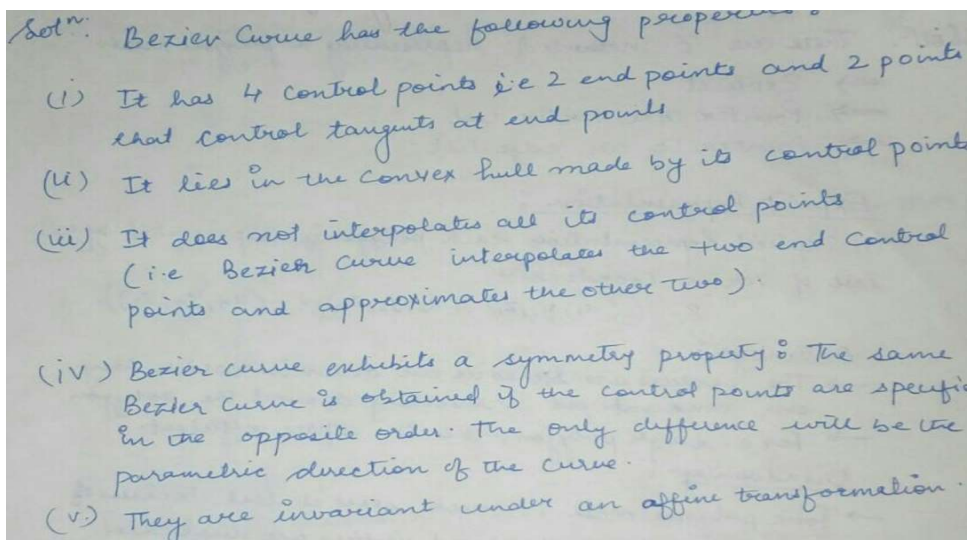 Solⁿ: Bezier Curve has the following properties:
(i) It has 4 control points i.e 2 end points and 2 points
that control tangents at end points
(ii) It lies in the convex hull made by its control points
(iii) It does not interpolates all its control points
(i.e Bezier Curve interpolates the two end Control
points and approximates the other two).
(iv) Bezier curve exhibits a symmetry property: The same
Bezier Curve is obtained if the control points are specifie
in the opposite order. The only difference will be the
parametric direction of the curve.
(v.) They are invariant under an affine transformation.